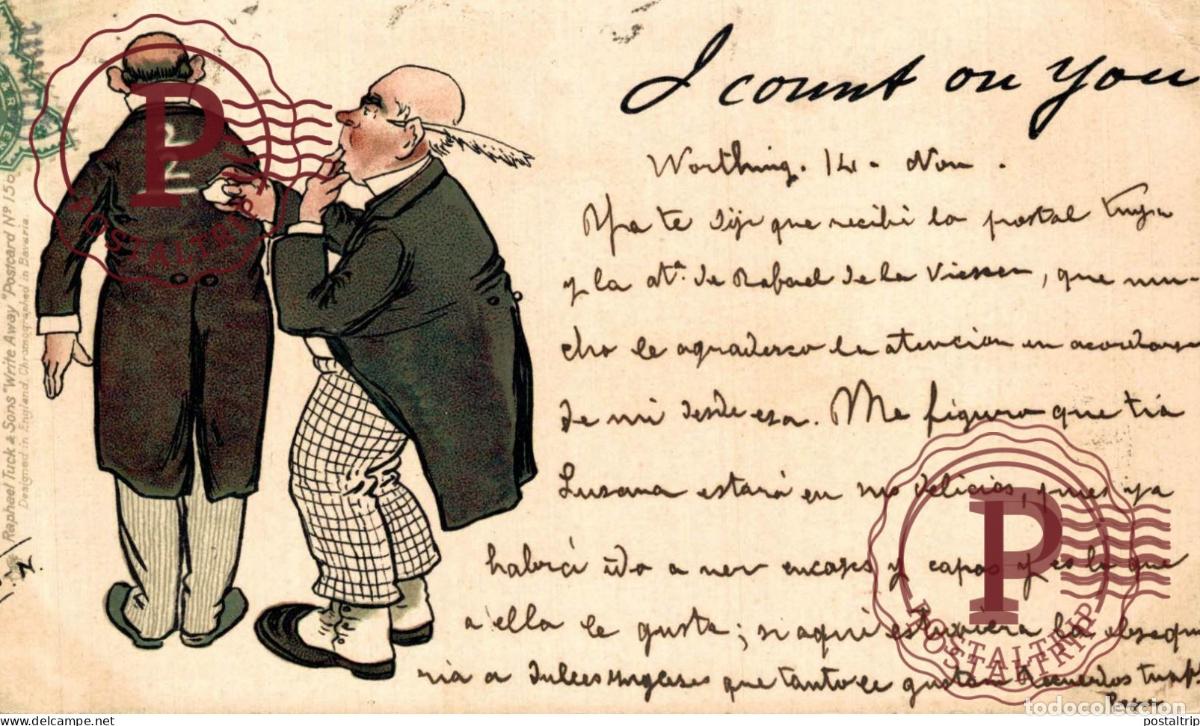 I count on you
Worthing. 14 - Nov.
Ya te dije que recibí la postal tuya
y la at.ª de Rafael de la Viesca, que mu-
cho le agradezco la atencion en acordarse
de mi desde esa. Me figuro que tia
Susana estará en sus delicias, pues ya
habrá ido a ver encajes y capas y es lo que
a ella le gusta; si aqui estuviera la obsequ
ria a dulces ingleses que tanto le gustan Recuerdos
2
2
Raphael Tuck & Sons "Write Away" Postcard Nº 150
Designed in England, Chromographed in Bavaria.
N.
P
POSTALTRIP
P
POSTALTRIP
todocoleccion
www.todocoleccion.net
postaltrip